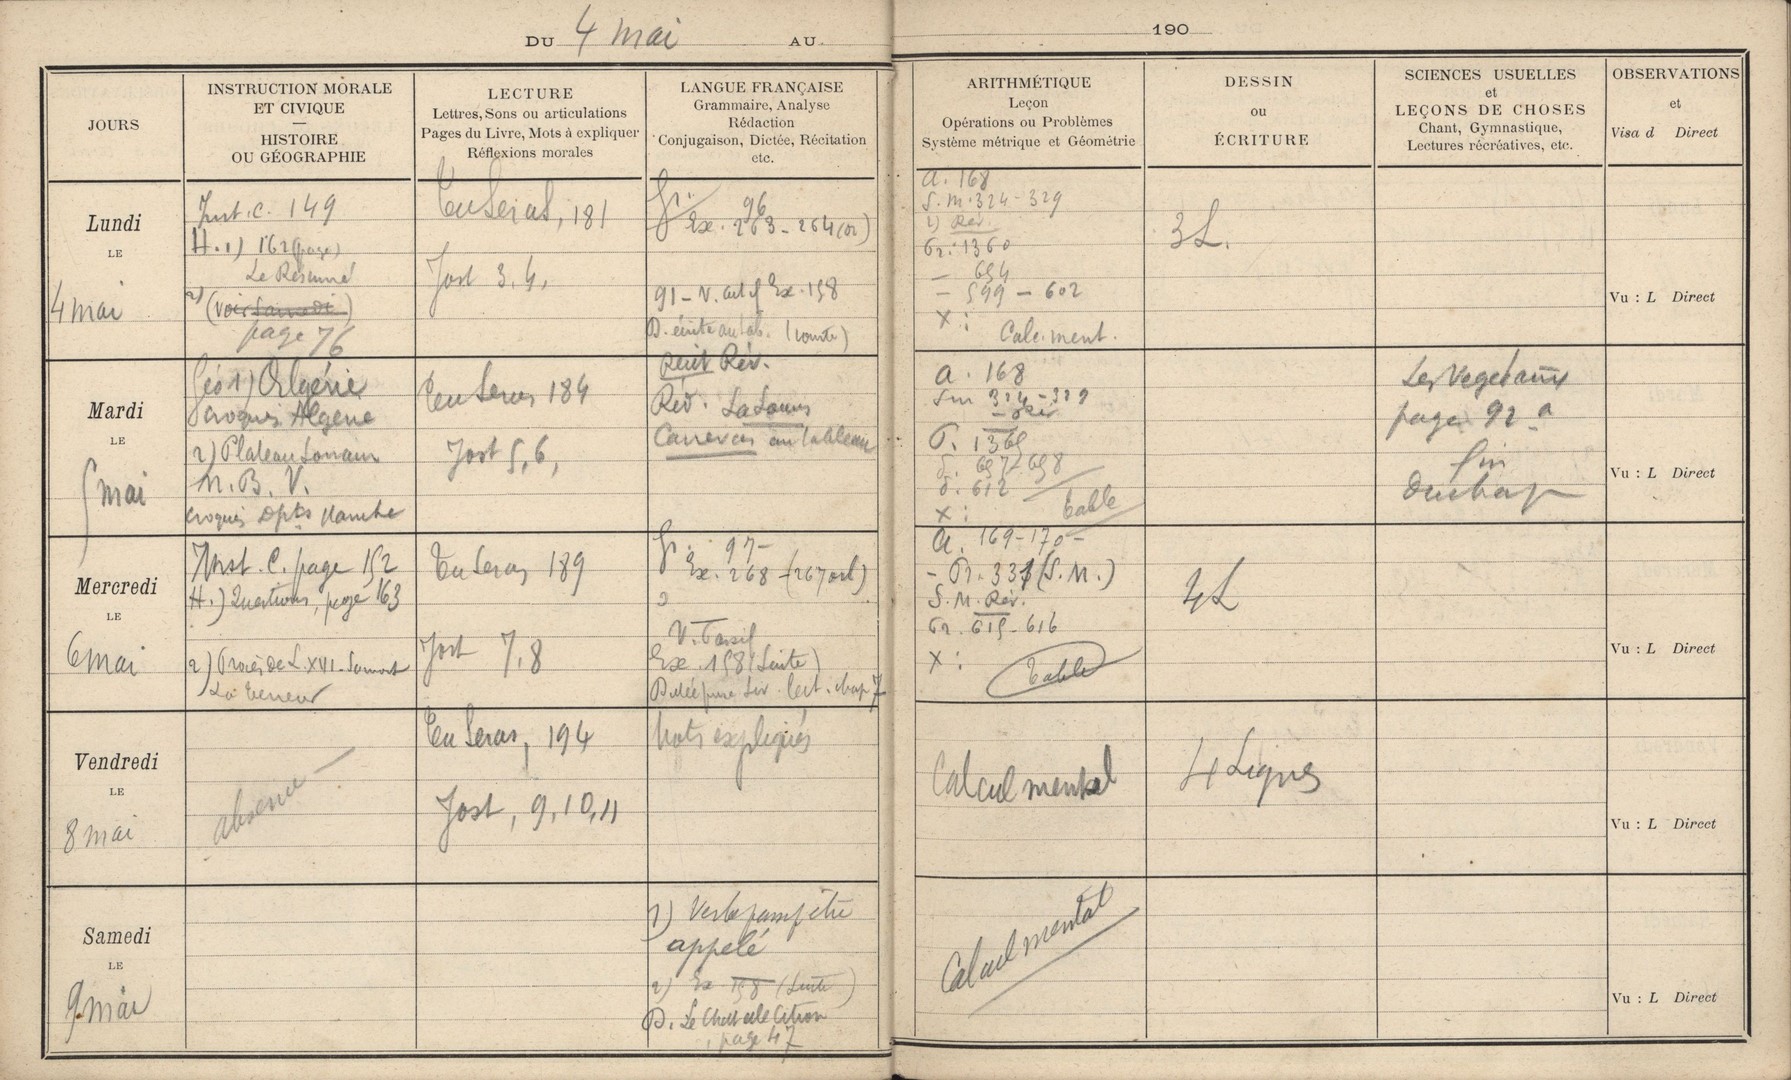 DU 4 mai AU
190
JOURS
INSTRUCTION MORALE
ET CIVIQUE
—
HISTOIRE
OU GÉOGRAPHIE
LECTURE
Lettres, Sons ou articulations
Pages du Livre, Mots à expliquer
Réflexions morales
LANGUE FRANÇAISE
Grammaire, Analyse
Rédaction
Conjugaison, Dictée, Récitation
etc.
ARITHMÉTIQUE
Leçon
Opérations ou Problèmes
Système métrique et Géométrie
DESSIN
ou
ÉCRITURE
SCIENCES USUELLES
et
LEÇONS DE CHOSES
Chant, Gymnastique,
Lectures récréatives, etc.
OBSERVATIONS
et
Visa d Direct
Lundi
LE
4 mai
Inst. c. 149
H. 1) 162 (page)
Le Résumé
2) (voir Samedi)
page 76
Tu Seras, 181
Jost 3. 4,
Gr. 96
Ex. 263 - 264 (or)
91 - V. act f Ex. 158
D. écrite au tab. (courte)
A. 168
S. M. 324 - 329
2) Rév.
Pr. 1360
— 694
— 599 — 602
X : Calc. ment.
3 L.
Vu : L Direct
Mardi
LE
5 mai
Géo 1) Algérie
Croquis Algérie
2) Plateau Lorrain
N. B. V.
Croquis Dpts Manche
Tu Seras 184
Jost 5, 6,
Réd.
Canevas au tableau
A. 168
S m 324 - 329
P. 1365
697 - 698
612
X : Table
Les Végétaux
page 92
fin
du chap
Vu : L Direct
Mercredi
LE
6 mai
Inst. C. page 152
H. ) Questions, page 163
2) Procès de L. XVI.
La Terreur
Tu Seras 189
Jost 7, 8
Gr. 97 -
Ex. 268 - (267 orl)
2
V. Passif
Ex. 158 (Suite)
Lect. chap 7
A. 169-170 -
- Pr. 331 (S. M.)
S. M. Rév.
Pr. 615 - 616
X : Table
4 L
Vu : L Direct
Vendredi
LE
8 mai
absence —
Tu Seras, 194
Jost, 9, 10, 11
Mots expliqués
Calcul mental
4 Lignes
Vu : L Direct
Samedi
LE
9 mai
1) Verbe passif être
appelé
2) Ex 158 (Suite)
D. Le Chat et le Citron
, page 47
Calcul mental
Vu : L Direct